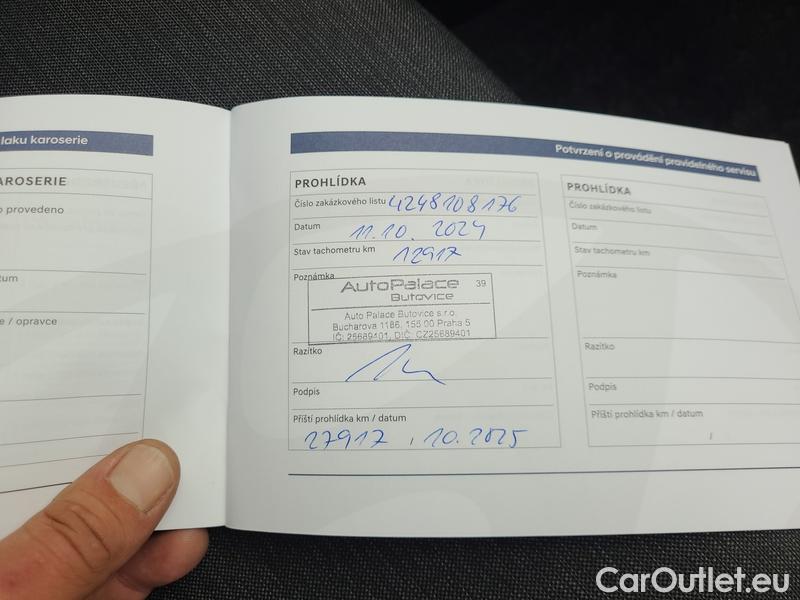 laku karoserie
AROSERIE
o provedeno
tum
e / opravce
Potvrzení o provádění pravidelného servisu
PROHLÍDKA
Číslo zakázkového listu 4248108176
Datum 11.10. 2024
Stav tachometru km 12917
Poznámka
AutoPalace 39
Butovice
Auto Palace Butovice s.r.o.
Bucharova 1186, 155 00 Praha 5
IČ: 25689401, DIČ: CZ25689401
Razítko
Podpis
Příští prohlídka km / datum
27917 , 10.2025
PROHLÍDKA
Číslo zakázkového listu
Datum
Stav tachometru km
Poznámka
Razítko
Podpis
Příští prohlídka km / datum
/
CarOutlet.eu